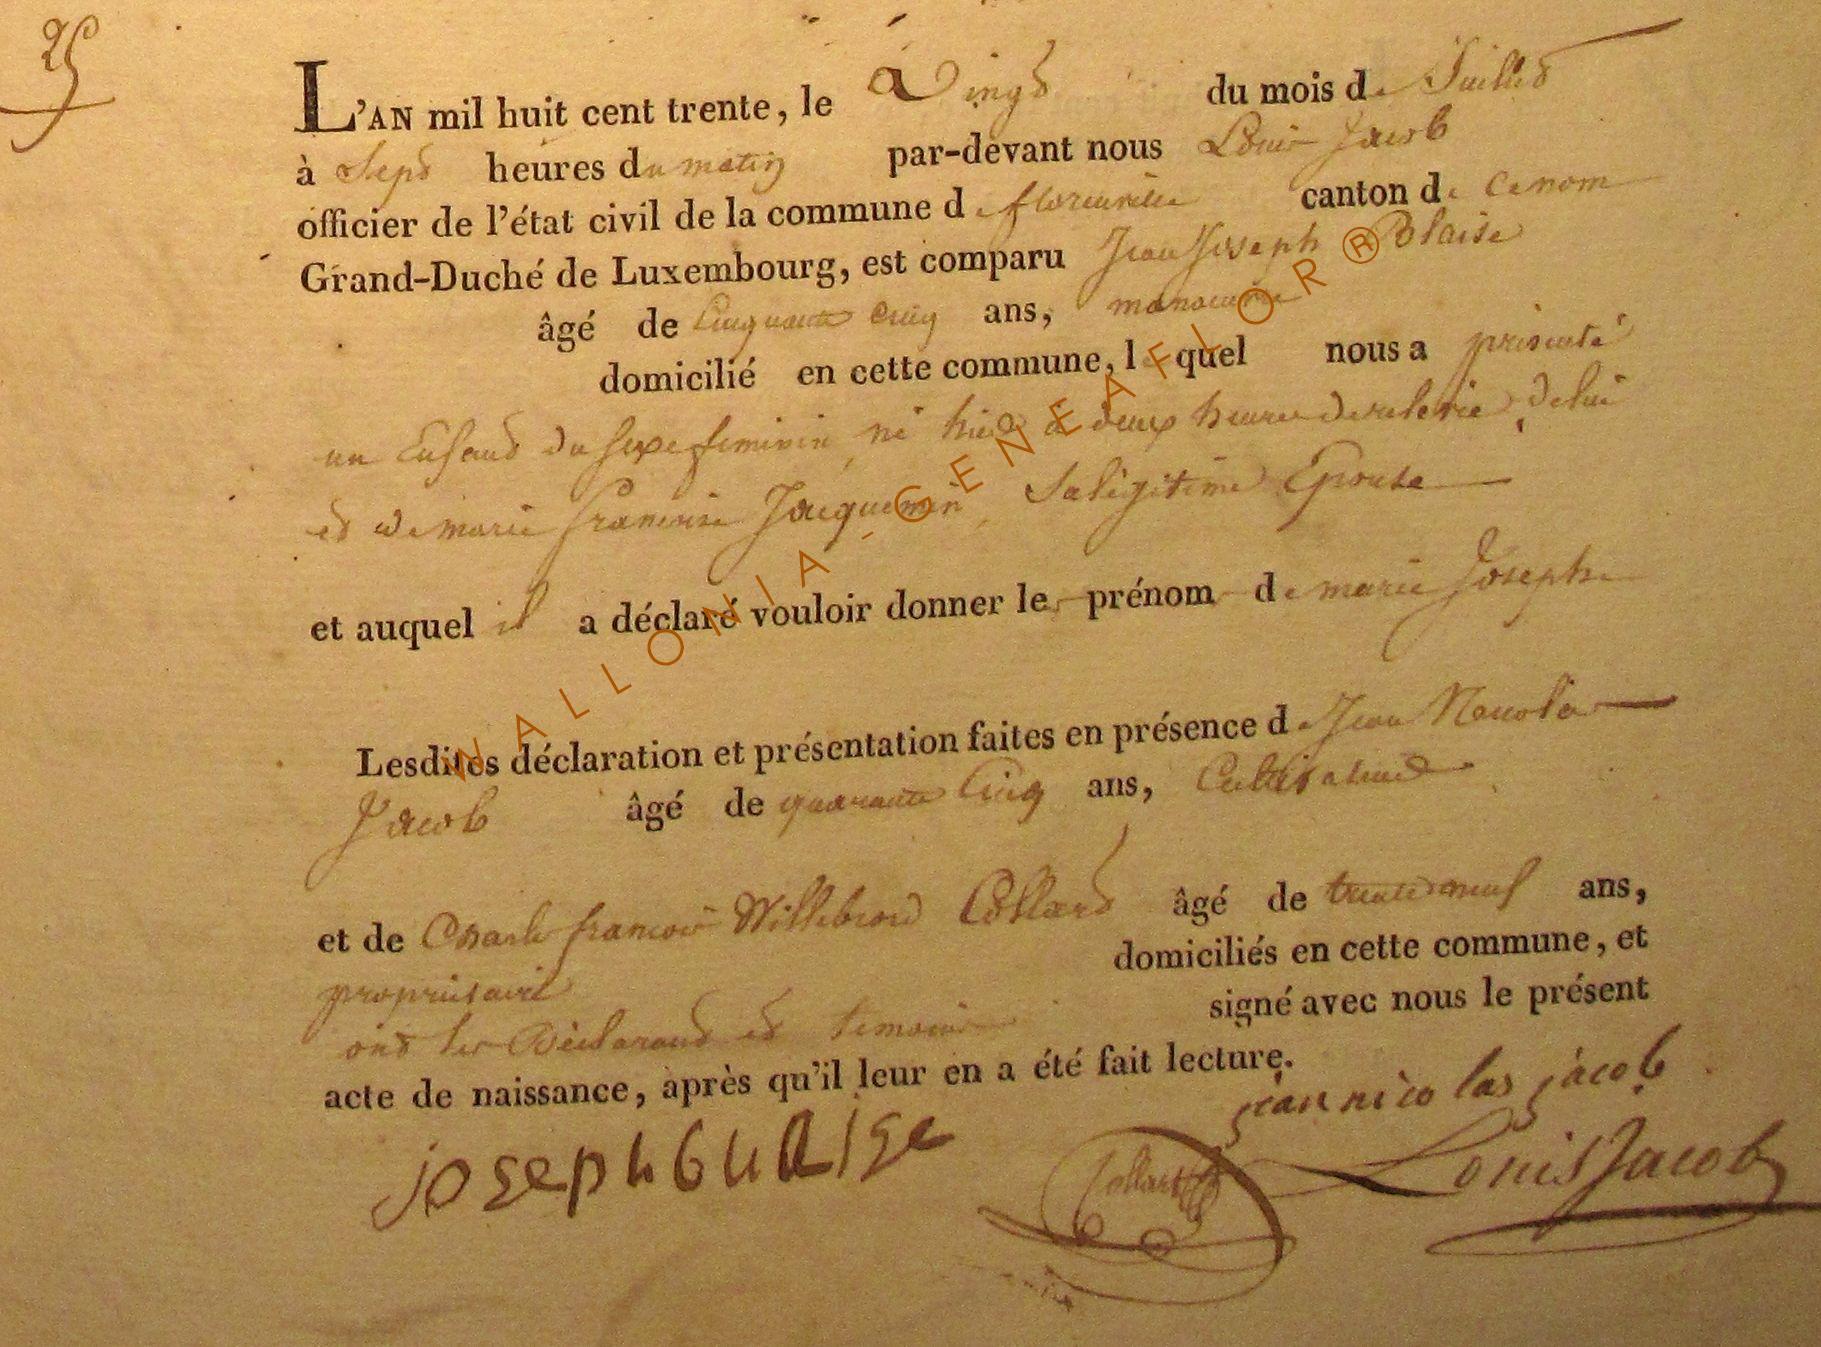 25
L'AN mil huit cent trente, le Vingt du mois de Juillet
à Sept heures du matin par-devant nous Louis Jacob
officier de l'état civil de la commune de florenville canton de ce nom
Grand-Duché de Luxembourg, est comparu Jean Joseph Blaise
âgé de Cinquante cinq ans, manoeuvre
domicilié en cette commune, lequel nous a présenté
un Enfant du sexe feminin, né hier à deux heures de relevée, de lui
et de marie françoise Jacquemin, Sa légitime Epouse
et auquel il a déclaré vouloir donner les prénoms de marie Josephe
Lesdites déclaration et présentation faites en présence de Jean Nicolas
Jacob âgé de quarante Cinq ans, Cultivateur
et de Charle françois Willebrord Collard âgé de trente neuf ans,
propriétaire domiciliés en cette commune, et
ont les Déclarant et temoins signé avec nous le présent
acte de naissance, après qu'il leur en a été fait lecture.
jean nicolas jacob
joseph
Collard
Louis Jacob
WALLONIA-GENEAFLOR®